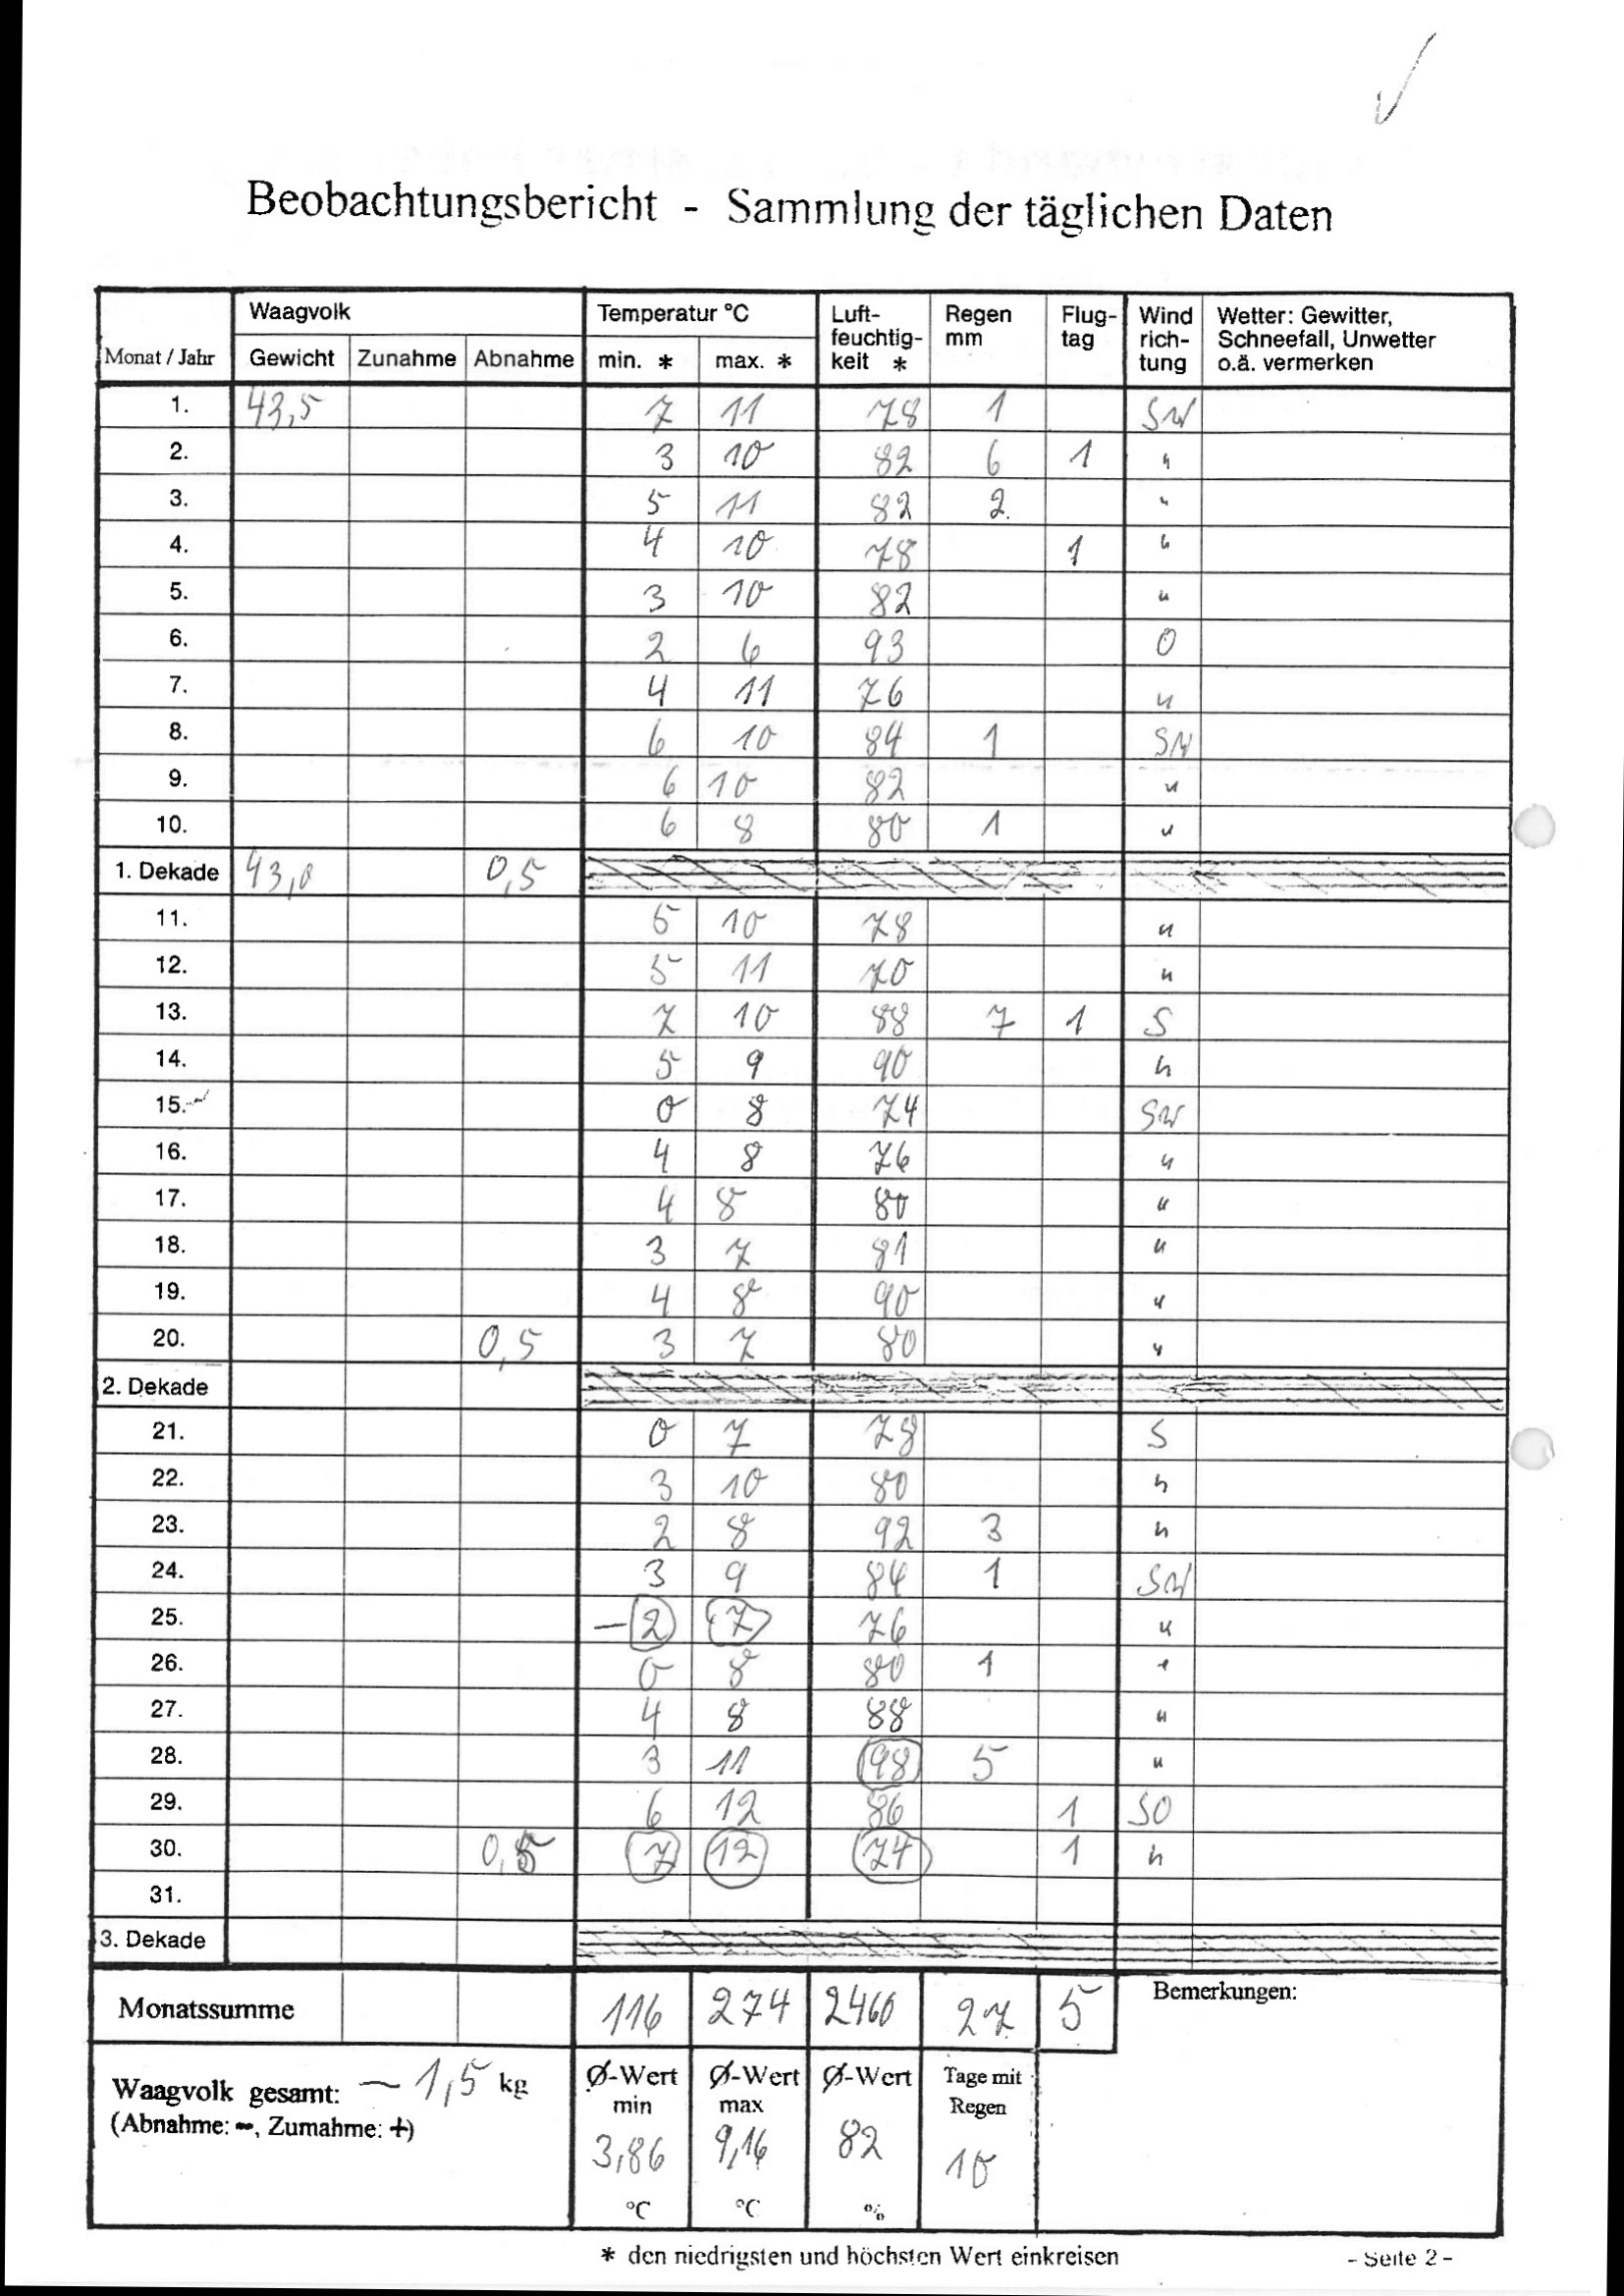 Beobachtungsbericht - Sammlung der täglichen Daten
Monat / Jahr Waagvolk Temperatur °C Luft-feuchtig-keit * Regen mm Flug-tag Wind rich-tung Wetter: Gewitter, Schneefall, Unwetter o.ä. vermerken
Gewicht Zunahme Abnahme min. * max. *
1. 43,5 7 11 78 1 SW
2. 3 10 82 6 1 "
3. 5 11 82 2. "
4. 4 10 78 1 "
5. 3 10 82 "
6. 2 6 93 O
7. 4 11 76 "
8. 6 10 84 1 SW
9. 6 10 82 "
10. 6 8 80 1 "
1. Dekade 43,0 0,5
11. 5 10 78 "
12. 5 11 70 "
13. 7 10 88 7 1 S
14. 5 9 90 "
15. 0 8 74 SW
16. 4 8 76 "
17. 4 8 80 "
18. 3 7 81 "
19. 4 8 90 "
20. 0,5 3 7 80 "
2. Dekade
21. 0 7 78 S
22. 3 10 80 "
23. 2 8 92 3 "
24. 3 9 84 1 SW
25. -2 7 76 "
26. 0 8 80 1 "
27. 4 8 88 "
28. 3 11 98 5 "
29. 6 12 86 1 SO
30. 0,5 7 12 74 1 "
31.
3. Dekade
Monatssumme 116 274 2460 27 5 Bemerkungen:
Waagvolk gesamt: - 1,5 kg
(Abnahme: -, Zumahme: +)
Ø-Wert min 3,86 °C
Ø-Wert max 9,16 °C
Ø-Wert 82 %
Tage mit Regen 10
* den niedrigsten und höchsten Wert einkreisen
- Seite 2 -